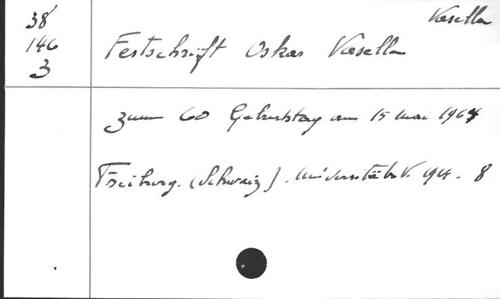 Vasella
38
146
3
Festschrift Oskar Vasella
zum 60 Geburtstag am 15 Mai 1964
Freiburg. (Schweiz). Universitäts V. 1964. 8